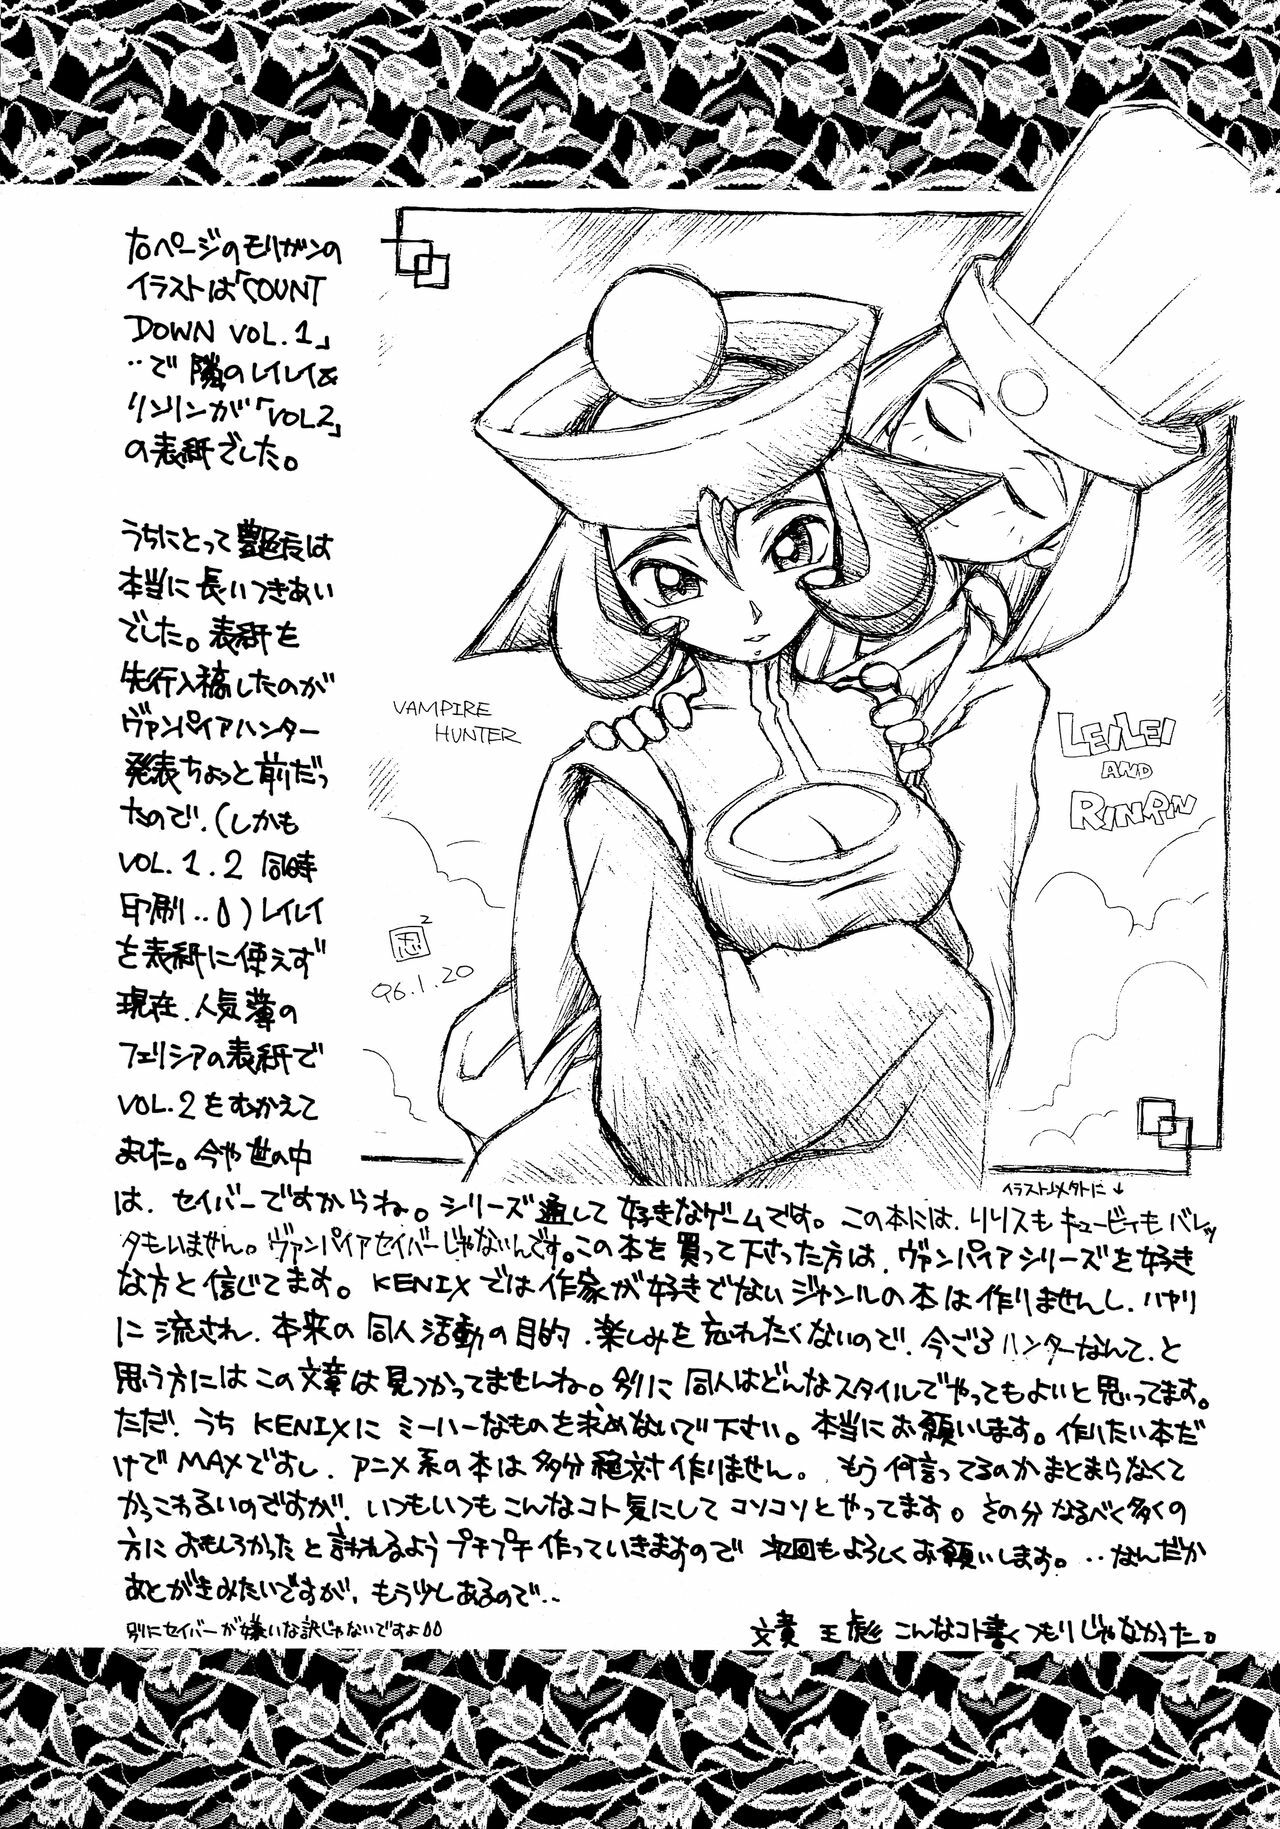 右ページのモリガンの
イラストは「COUNT
DOWN VOL.1」
‥で隣のレイレイ&
リンリンが「VOL2」
の表紙でした。
うちにとって艶疫は
本当に長いつきあい
でした。表紙を
先行入稿したのが
ヴァンパイアハンター
発表ちょっと前だっ
たので、(しかも
VOL.1.2 同時
印刷‥)レイレイ
を表紙に使えず
現在、人気薄の
フェリシアの表紙で
VOL.2をむかえて
ました。今や世の中
は、セイバーですからね。シリーズ通して好きなゲームです。この本には、リリスもキュービィもバレッ
タもいません。ヴァンパイアセイバーじゃないんです。この本を買って下さった方は、ヴァンパイアシリーズを好き
な方と信じてます。KENIXでは作家が好きでないジャンルの本は作りませんし、ハヤリ
に流され、本来の同人活動の目的、楽しみを忘れたくないので、今ごろハンターなんて、と
思う方にはこの文章は見つかってませんね。別に同人はどんなスタイルでやってもよいと思ってます。
ただ、うちKENIXにミーハーなものを求めないで下さい。本当にお願いします。作りたい本だ
けでMAXですし、アニメ系の本は多分絶対作りません。もう何言ってるのかまとまらなくて
かっこわるいのですが、いつもいつもこんなコト気にしてコソコソとやってます。その分なるべく多くの
方におもしろかったと言われるようプチプチ作っていきますので次回もよろしくお願いします。‥なんだか
あとがきみたいですが、もう少しあるので‥
別にセイバーが嫌いな訳じゃないですよ
文責 王彪 こんなコト書くつもりじゃなかった。
VAMPIRE
HUNTER
LEILEI
AND
RINRIN
2
96.1.20
イラストJメタトに↓